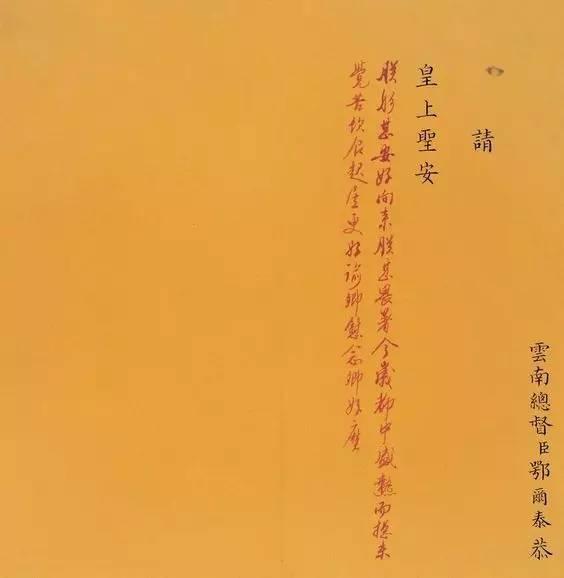 雲南總督臣鄂爾泰恭
請
皇上聖安
朕躬甚安好向來朕甚畏暑今歲都中盛熱而摠未
覺苦飲食起居更好諭卿慰念卿好麼